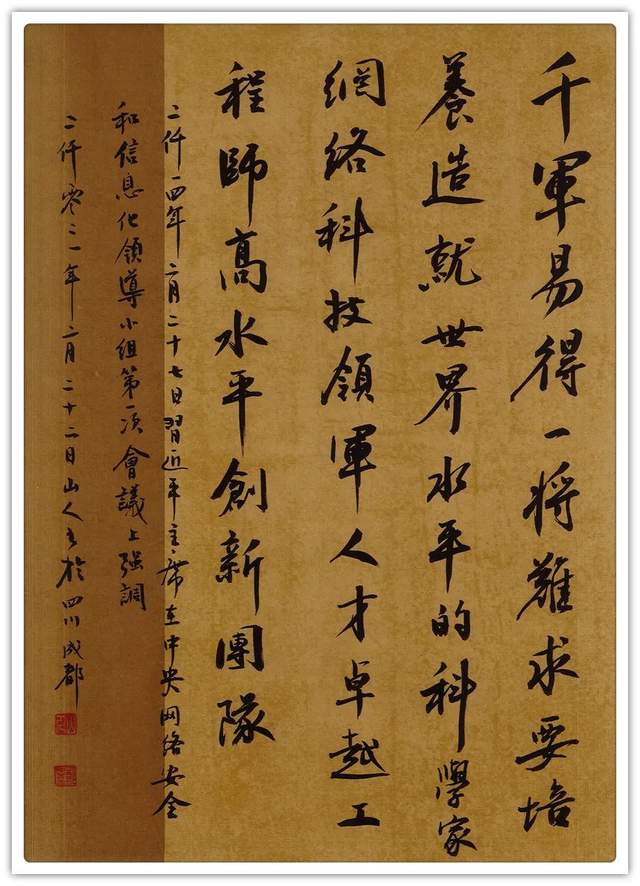 千軍易得一将難求要培
養造就世界水平的科學家
網络科技領軍人才卓越工
程師高水平創新團隊
二仟一四年二月二十七日習近平主席在中央网络安全
和信息化領導小組第一次會議上强調
二仟零二一年二月二十二日山人书於四川成都